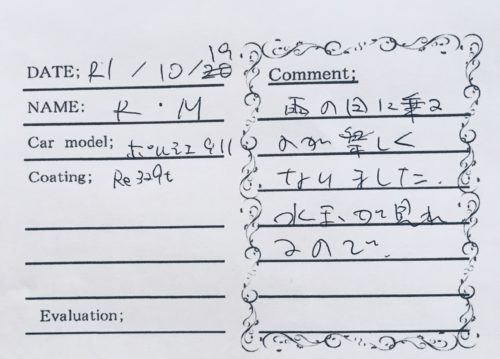 DATE; R1 / 10 / 19
NAME: K・M
Car model; ポルシェ911
Coating;
Evaluation;
Comment;
雨の日に乗る
のが楽しく
なりました.
水玉が見れ
るので.